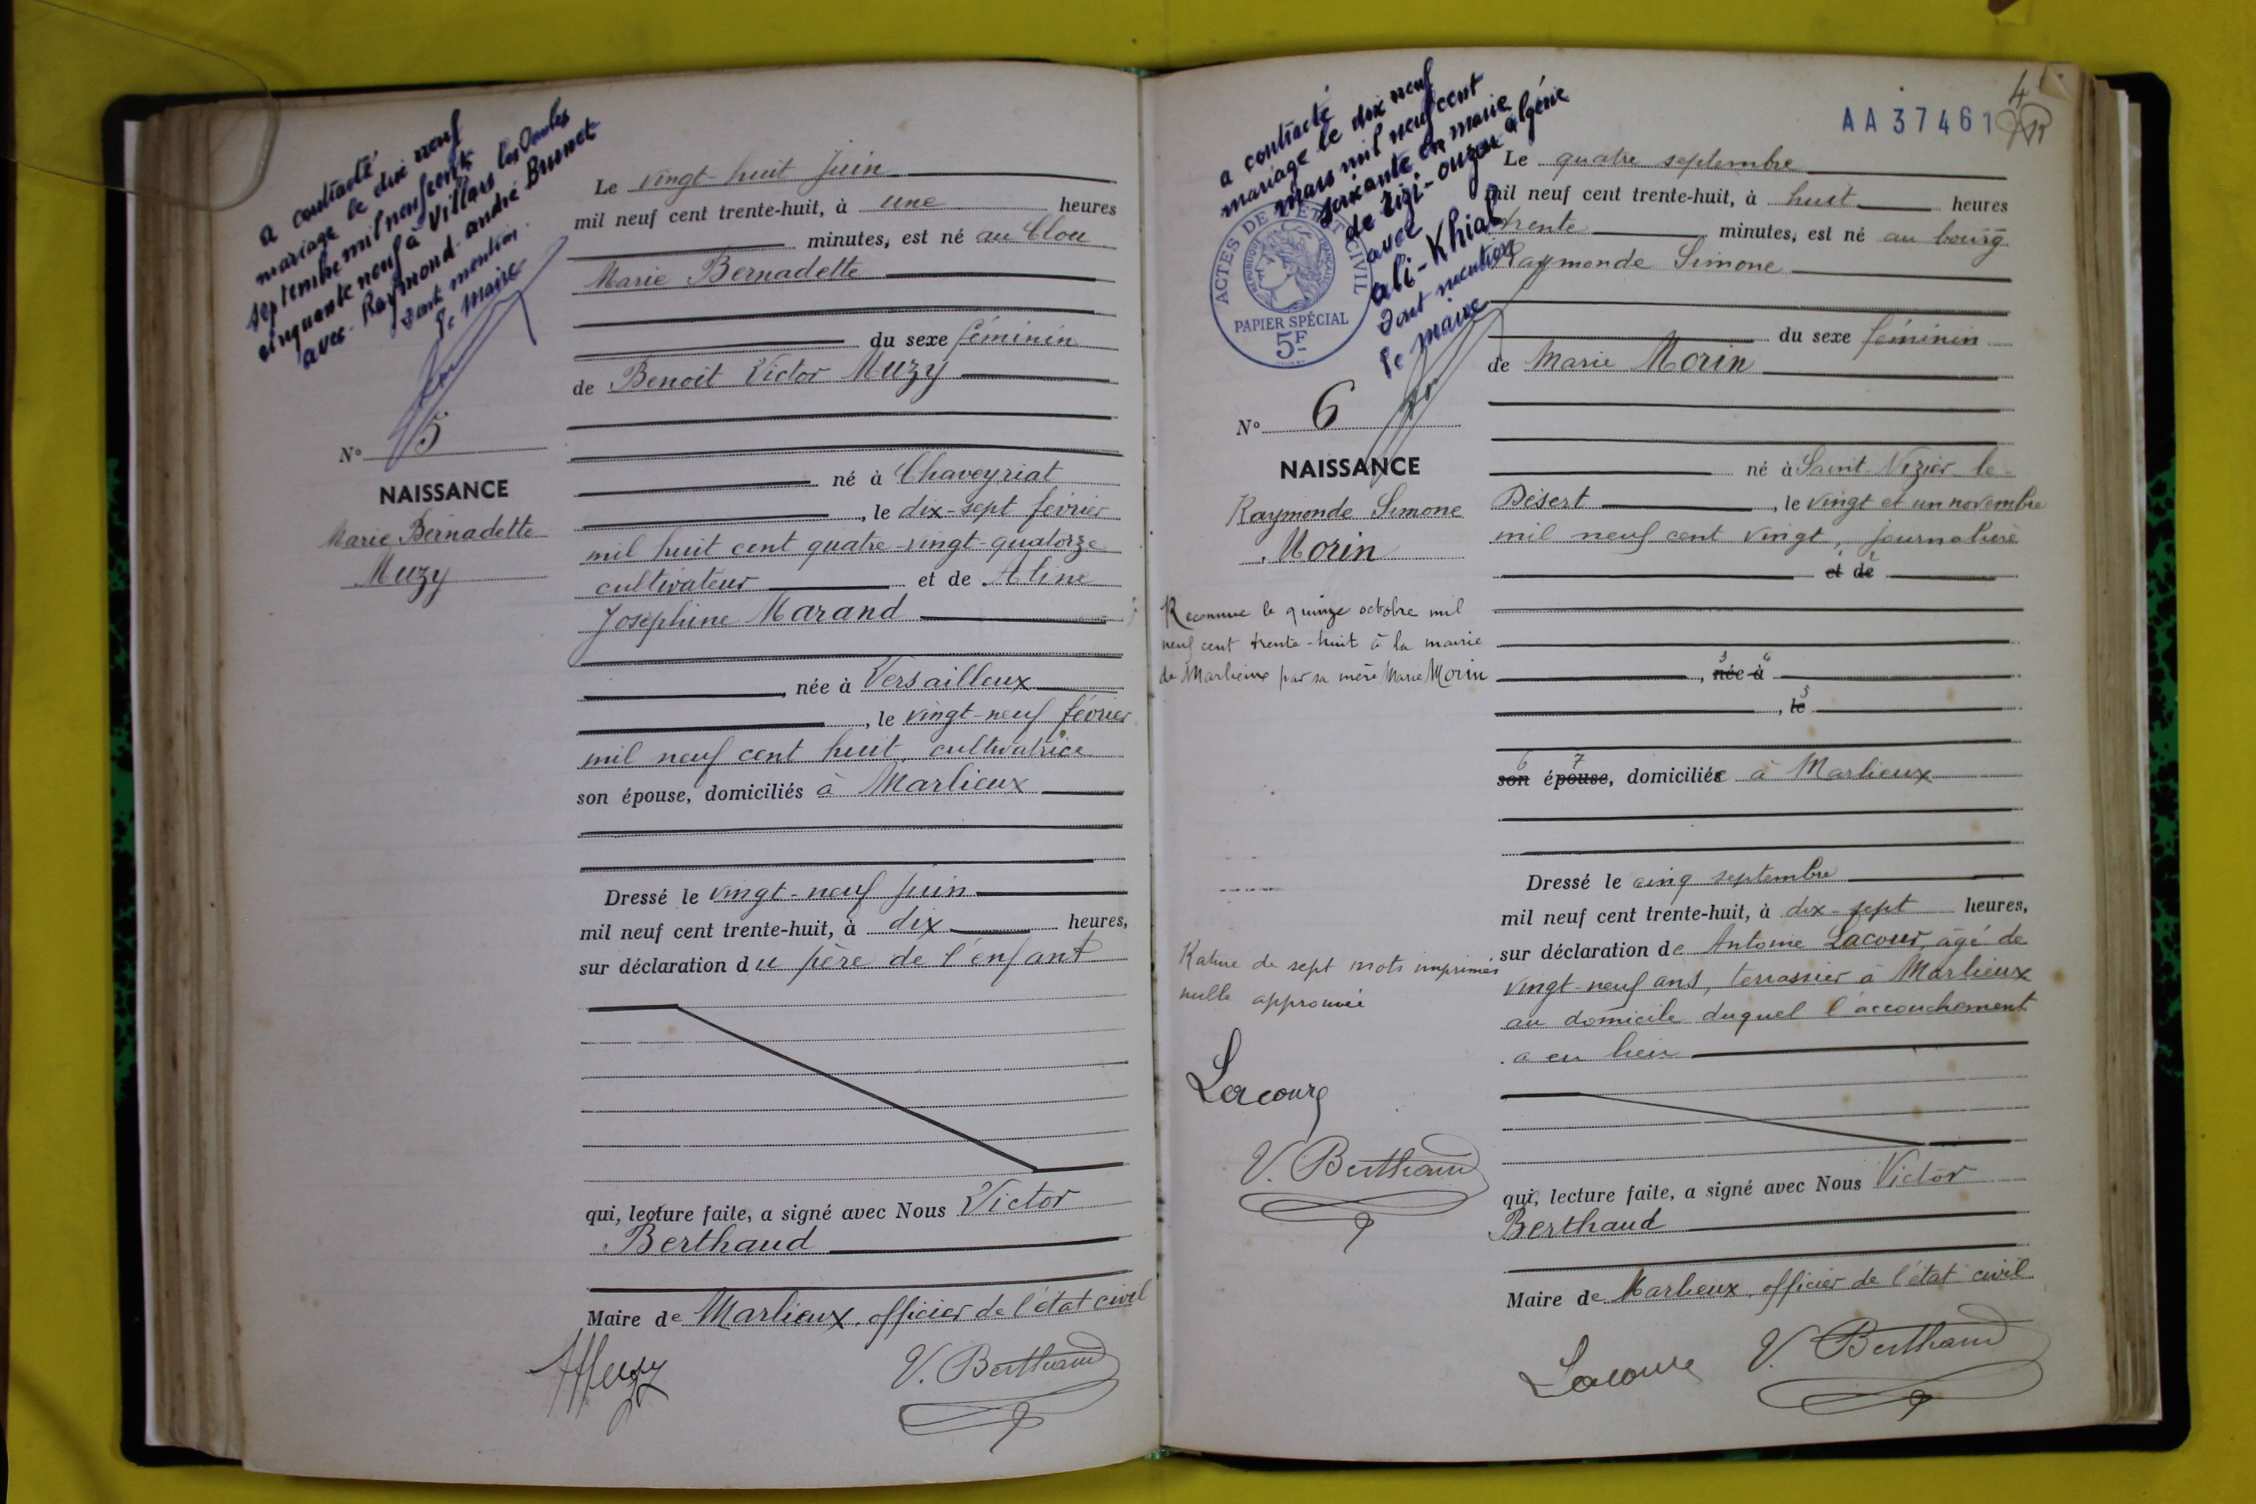 a contracté
mariage le dix neuf
septembre mil neuf cent
cinquante neuf à Villars les Dombes
avec Raymond andré Brunet
dont mention
le Maire
N° 5
NAISSANCE
Marie Bernadette
Muzy
Le vingt-huit juin
mil neuf cent trente-huit, à une heures
minutes, est né au Clou
Marie Bernadette
du sexe féminin
de Benoit Victor Muzy
né à Chaveyriat
, le dix-sept février
mil huit cent quatre-vingt-quatorze
cultivateur et de Aline
Joséphine Marand
, née à Versailleux
, le vingt-neuf février
mil neuf cent huit cultivatrice
son épouse, domiciliés à Marlieux
Dressé le vingt-neuf juin
mil neuf cent trente-huit, à dix heures,
sur déclaration du père de l'enfant
qui, lecture faite, a signé avec Nous Victor
Berthaud
Maire de Marlieux, officier de l'état civil
Muzy
V. Berthaud
a contracté
mariage le dix neuf
mars mil neuf cent
soixante en mairie
de tizi-ouzou algérie
avec
ali-Khial
dont mention
le maire
ACTES DE L'ETAT CIVIL
REPUBLIQUE FRANÇAISE
PAPIER SPÉCIAL
5F
N° 6
NAISSANCE
Raymonde Simone
Morin
Reconnue le quinze octobre mil
neuf cent trente-huit à la mairie
de Marlieux par sa mère Marie Morin
Rature de sept mots imprimés
nulle approuvée
Lacour
V. Berthaud
4
AA37461
Le quatre septembre
mil neuf cent trente-huit, à huit heures
trente minutes, est né au bourg
Raymonde Simone
du sexe féminin
de Marie Morin
né à Saint-Nizier-le-
Désert , le vingt et un novembre
mil neuf cent vingt, journalière
1 2
et de
3 4
, née à
5
, le
6 7
son épouse, domiciliée à Marlieux
Dressé le cinq septembre
mil neuf cent trente-huit, à dix-sept heures,
sur déclaration de Antoine Lacour, âgé de
vingt-neuf ans, terrassier à Marlieux
au domicile duquel l'accouchement
a eu lieu
qui, lecture faite, a signé avec Nous Victor
Berthaud
Maire de Marlieux, officier de l'état civil
Lacour
V. Berthaud